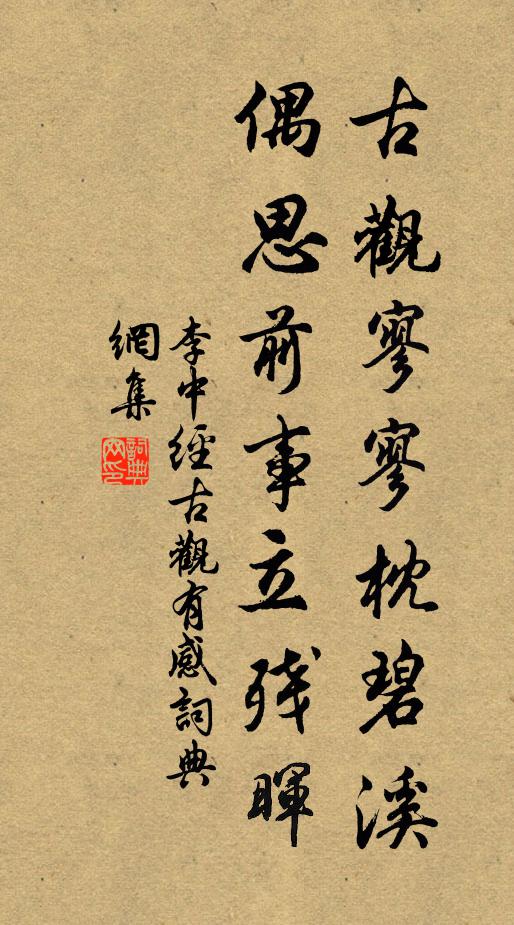 古觀寥寥枕碧溪
偶思前事立残暉
李中經古觀有感詞典
網集
詞典网印